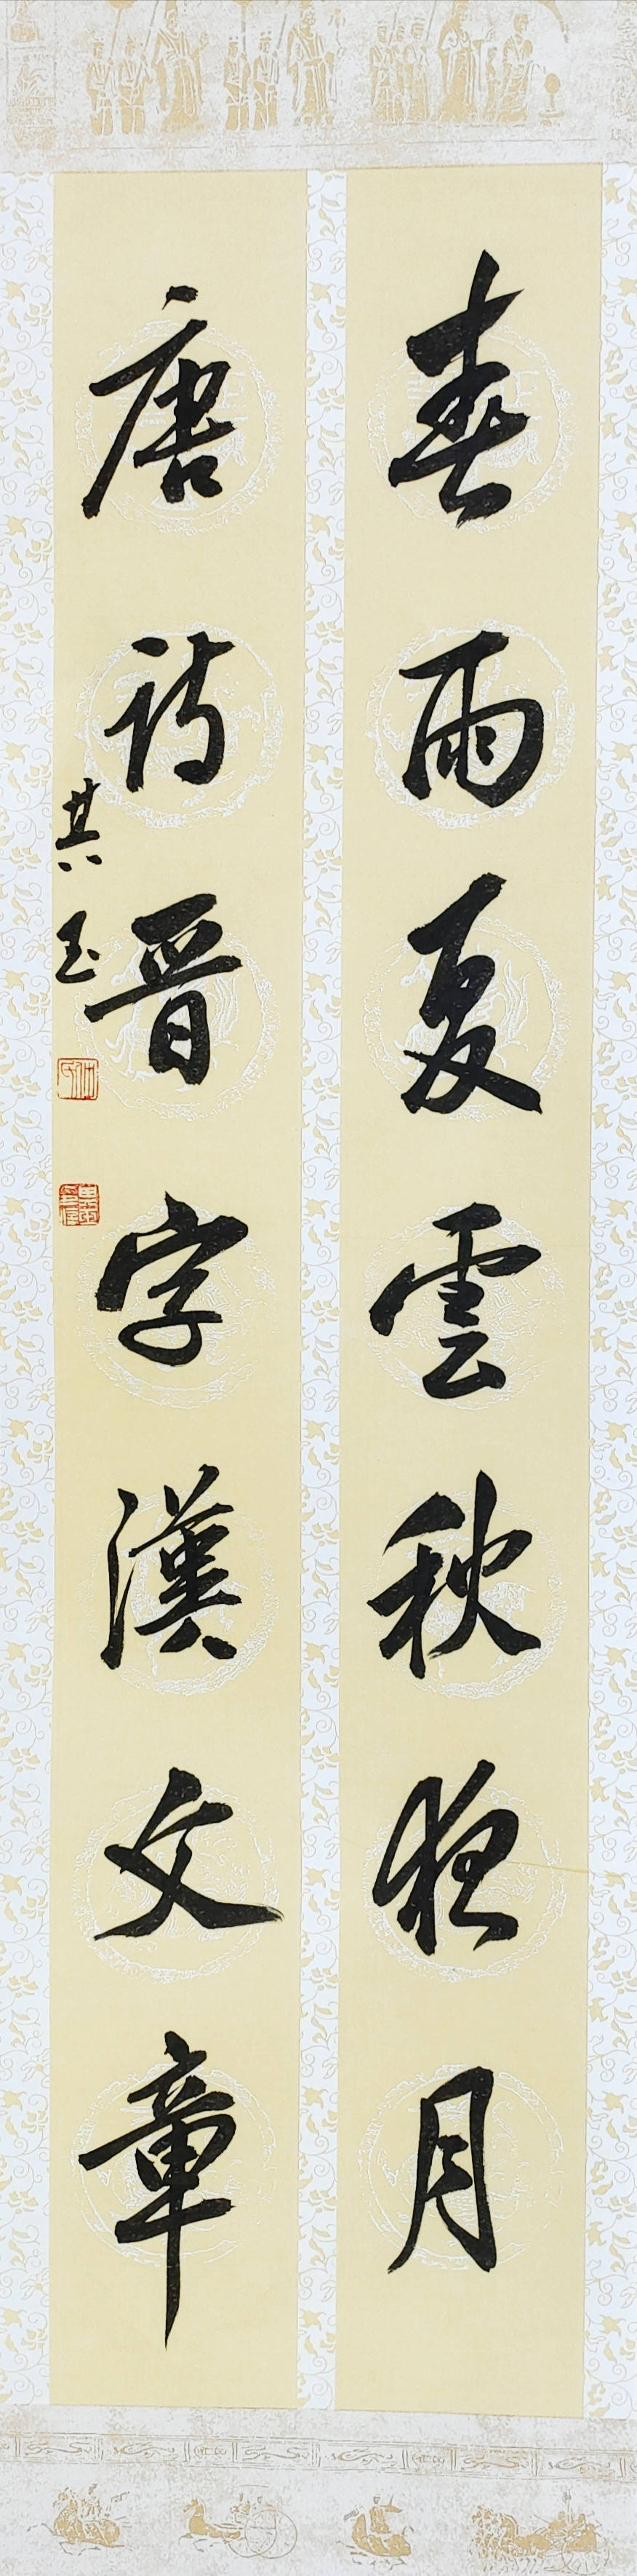 春雨夏雲秋夜月
唐詩晉字漢文章
其玉